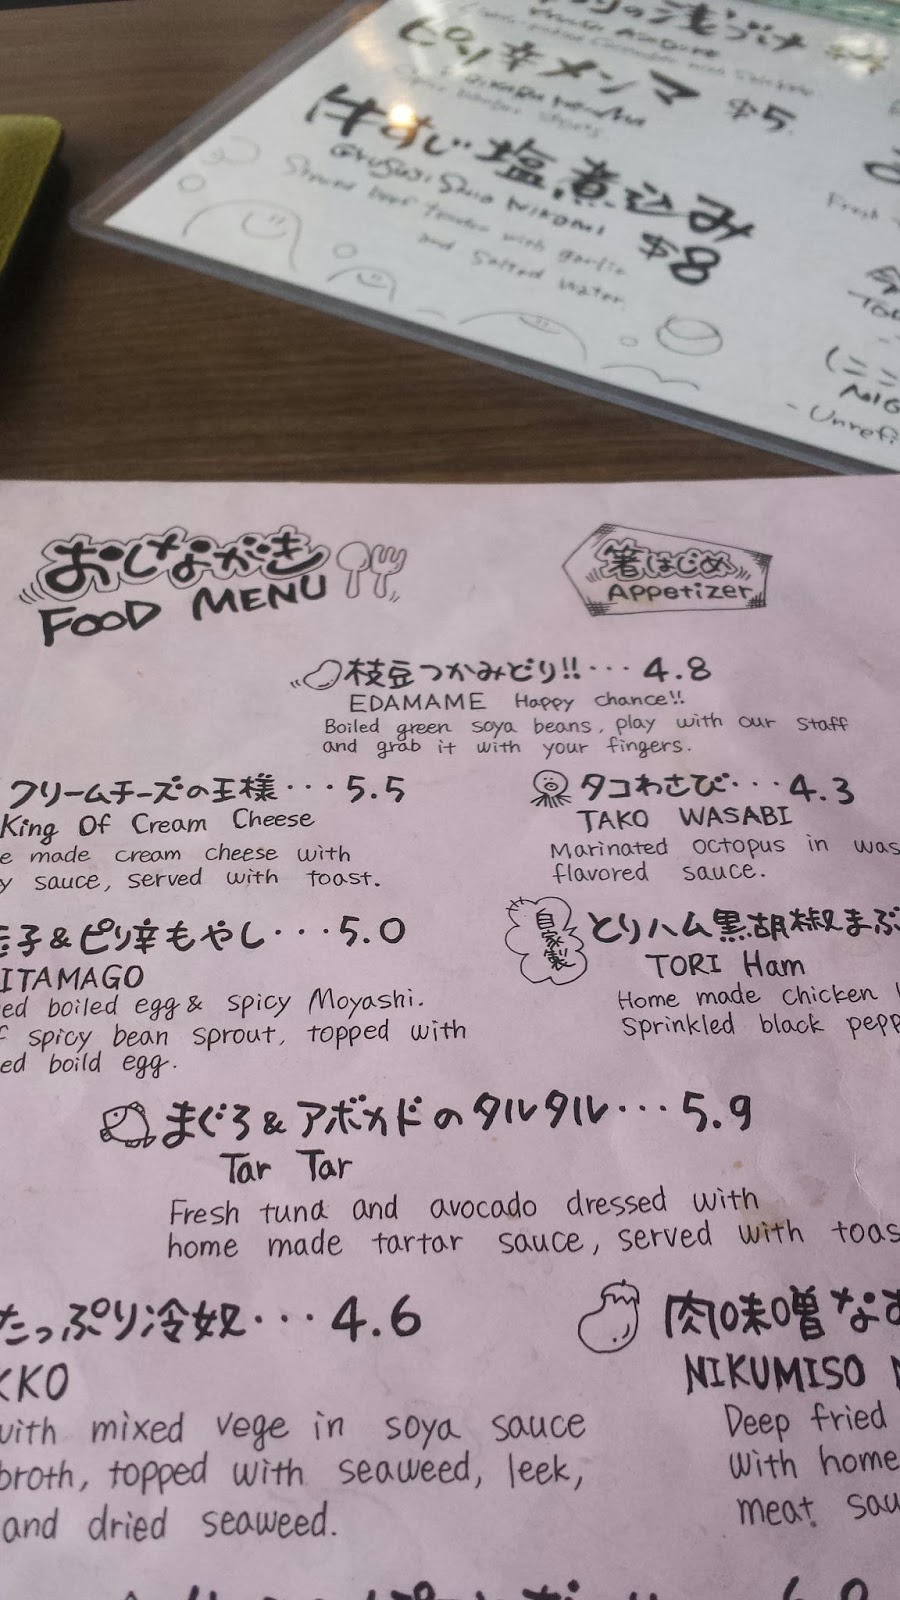 浅づけ
ピリ辛メンマ $5.
牛すじ塩煮込み $8
GYUSUJI SHIO NIKOMI
Stewed beef tendon with garlic
and salted water.
Fresh
- Unrefi
おしながき
FOOD MENU
箸はじめ
Appetizer
枝豆つかみどり!!・・・4.8
EDAMAME Happy chance!!
Boiled green soya beans, play with our staff
and grab it with your fingers.
クリームチーズの王様・・・5.5
King Of Cream Cheese
e made cream cheese with
y sauce, served with toast.
タコわさび・・・4.3
TAKO WASABI
Marinated octopus in was
flavored sauce.
玉子&ピリ辛もやし・・・5.0
ITAMAGO
ed boiled egg & spicy Moyashi.
f spicy bean sprout, topped with
ed boild egg.
自家製
とりハム黒胡椒まぶ
TORI Ham
Home made chicken
Sprinkled black pepp
まぐろ&アボカドのタルタル・・・5.9
Tar Tar
Fresh tuna and avocado dressed with
home made tartar sauce, served with toas
たっぷり冷奴・・・4.6
KKO
with mixed vege in soya sauce
broth, topped with seaweed, leek,
and dried seaweed.
肉味噌な
NIKUMISO
Deep fried
with home
meat sau